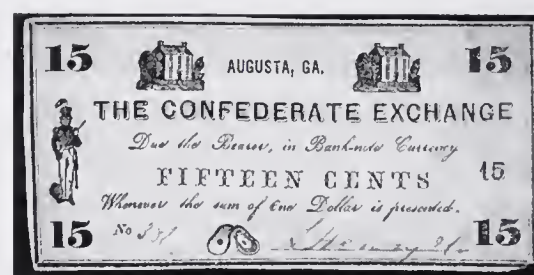 15 AUGUSTA, GA. 15
THE CONFEDERATE EXCHANGE
Due the Bearer, in Bank-note Currency
FIFTEEN CENTS 15
Whenever the sum of One Dollar is presented.
15 No 15